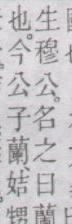 生穆公。名之曰蘭
也。今公子蘭姞甥